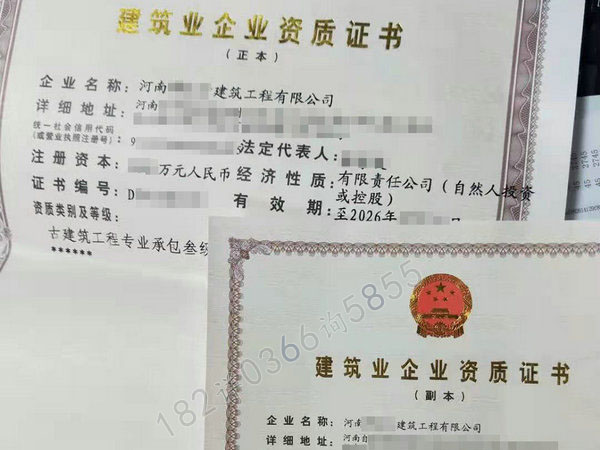 建筑业企业资质证书
(正本)
企业名称:河南 建筑工程有限公司
详细地址:河南
统一社会信用代码
(或营业执照注册号):9
法定代表人:
注册资本: 万元人民币
经济性质:有限责任公司(自然人投资
或控股)
证书编号:D
有效期:至2026年
资质类别及等级:
古建筑工程专业承包叁级
******
182 0366询5855
建筑业企业资质证书
(副本)
企业名称:河南 建筑工程有限公司
详细地址:河南